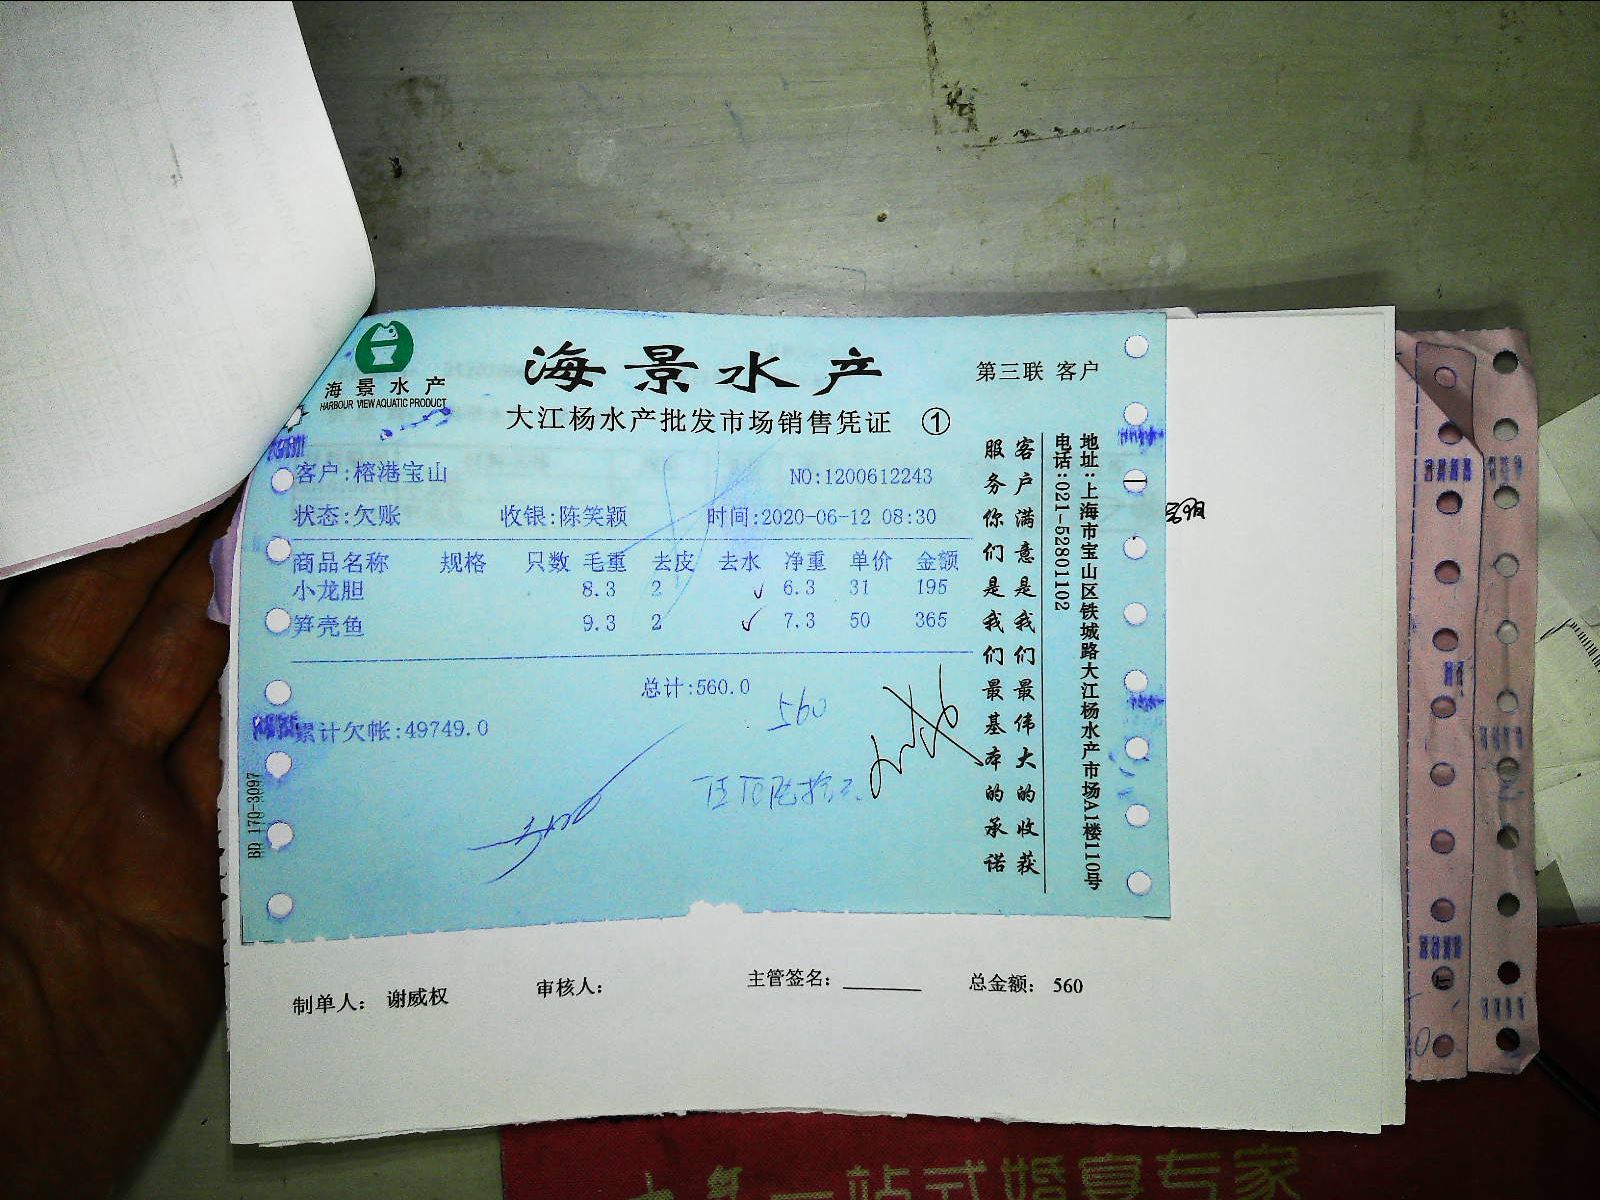 海景水产
HARBOUR VIEW AQUATIC PRODUCT
海景水产
第三联 客户
大江杨水产批发市场销售凭证 ①
客户:榕港宝山 NO:1200612243
状态:欠账 收银:陈笑颖 时间:2020-06-12 08:30
商品名称 规格 只数 毛重 去皮 去水 净重 单价 金额
小龙胆 8.3 2 6.3 31 195
笋壳鱼 9.3 2 7.3 50 365
总计:560.0
560
累计欠帐:49749.0
客户满意是我们最伟大的收获
服务你们是我们最基本的承诺
地址:上海市宝山区铁城路大江杨水产市场A1楼110号
电话:021-52801102
BD 170-3097
制单人: 谢威权 审核人: 主管签名: 总金额: 560
一站式婚宴专家